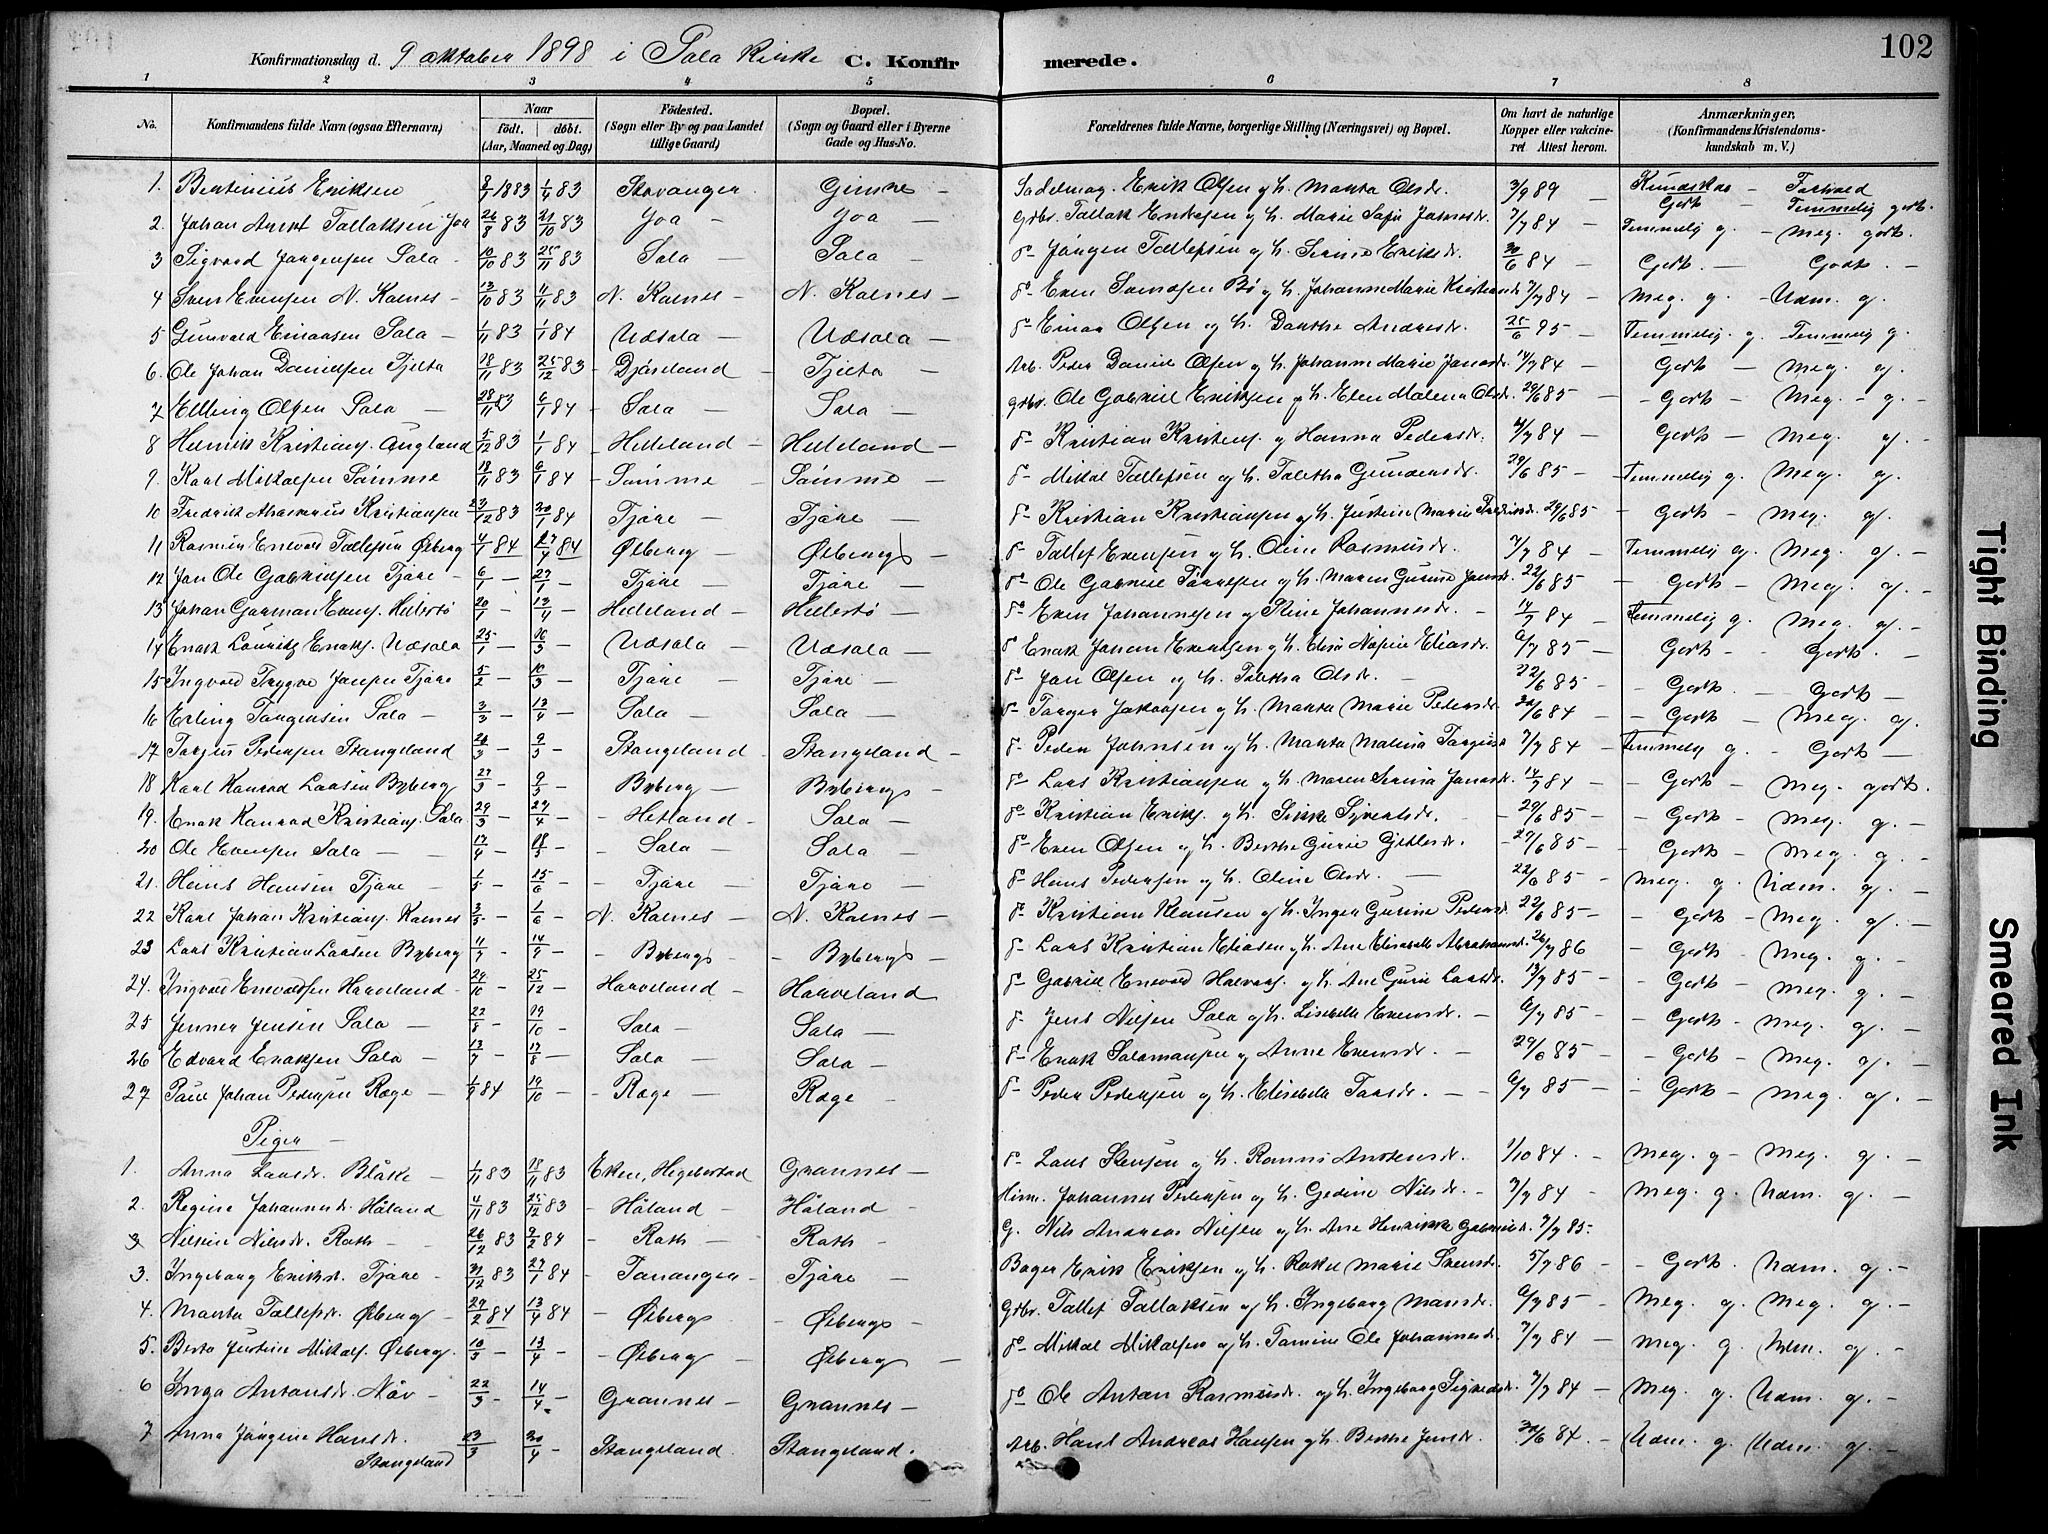 Konfirmationsdag d. 9 oktober 1898 i Sola Kirke C. Konfirmerede. 102
1 2 3 4 5 6 7 8
No. Konfirmandens fulde Navn (ogsaa Efternavn) Naar født. døbt. (Aar, Maaned og Dag) Fødested. (Sogn eller By og paa Landet tillige Gaard) Bopæl. (Sogn og Gaard eller i Byerne Gade og Hus-No. Forældrenes fulde Navne, borgerlige Stilling (Næringsvei) og Bopæl. Om havt de naturlige Kopper eller vakcineret Attest herom. Anmærkninger. (Konfirmandens Kristendomskundskab m. V.)
Kundskab - Forhold
1. Bertinius Eriksen 8/7 1883 1/4 83 Stavanger Gimre - Sadelmag. Erik Olsen og h. Marta Olsdr. 3/9 89 Godt - Temmelig godt.
2. Johan Arnt Tallaksen Joa 26/8 83 21/10 83 Joa - Joa - Grbr. Tallak Eriksen og h. Marie Sofie Jansdr. 7/7 84 - Temmelig g. - Meg. godt.
3 Sigvard Jørgensen Sola - 10/10 83 25/11 83 Sola - Sola - do Jørgen Tallefsen og h. Serine Eriksdr. 30/6 84 - Godt - Godt -
4 Sven Evensen N. Kolnes - 13/10 83 11/11 83 N. Kolnes - N. Kolnes - do Even Bø og h. Johanne Marie 7/7 84 - Meg. g. - Udm. g.
5 Gunvald Einarsen Sola - 1/11 83 1/1 84 - Udsola - Udsola - do Einar Olsen og h. Dorthe Andrea 25/6 95 - Temmelig g. - Temmelig g.
6. Ole Johan Danielsen Tjelta 18/11 83 25/12 83 - Djøseland - Tjelta - Arb. Peder Daniel Olsen og h. Johanne Marie Jonasdr. 14/7 84 - Godt - Meg. g.
7 Elling Olsen Sola - 28/11 83 6/1 84 - Sola - Sola - Grbr. Ole Gabriel Eriksen og h. Elen Malena Olsdr. 29/6 85 - Godt - Meg. - g. -
8 Henrik Kristians. Augland 5/12 83 1/1 84 - Helleland - Helleland - do Kristian Kristens. og Hanna Pedersdr. 4/7 84 - Godt - Meg. g. -
9. Karl Mikalsen Sømme 18/11 83 6/1 84 - Sømme - Sømme - do Mikal Tallefsen og h. Taletha Gundersdr. 29/6 85 - Temmelig g. - Meg. g.
10 Fredrik Kristiansen 23/12 83 20/1 84 - Tjøre - Tjøre - do Kristian Kristiansen og h. Justine Marie 29/6 85 - Godt - Meg. g.
11 Rasmus Enevald Tallefsen Ølberg 4/1 84 27/4 84 - Ølberg - Ølberg - do Tallef Evensen og h. Oline Rasmusdr. 7/7 84 - Temmelig g. - Meg. g. -
12 Jan Ole Gabrielsen Tjøre - 6/1 - 27/1 - Tjøre - Tjøre - do Ole Gabriel og h. Maren Gurine Jansdr. 22/6 85 - Godt - Meg. g. -
13 Johan Garman Evens. Hellestø 20/1 - 13/4 - Helleland - Hellestø - do Even Johannesen og Stine Johannesdr. - 14/7 84 - Temmelig g. Meg. g. -
14 Enok Lauritz Enoks. Udsola 25/1 - 16/3 - Udsola - Udsola - do Enok Johan Evertsen og h. Elisa Eliasdr. 6/7 85 - Godt - Godt -
15 Ingvald Trygve Jansen Tjøre 5/2 - 10/3 - Tjøre - Tjøre - do Jan Olsen og h. Taletha Olsdr. - 22/6 85 - Godt - Godt -
16 Erling Torgersen Sola - 3/3 - 13/4 - Sola - Sola - do Torger Jakobsen og h. Marta Marie Pedersdr. 30/6 84 - Godt - Meg. g.
17 Torjus Pedersen Stangeland 20/3 - 9/3 - Stangeland - Stangeland - do Peder Johnsen og h. Marta Malena 7/7 84 - Temmelig g. - Godt -
18 Karl Konrad Larsen Byberg 27/3 - 9/3 - Byberg - Byberg - do Lars Kristiansen og h. Maren Serina Jonasdr. 14/7 84 - Godt - Meg. godt.
19. Enok Konrad Kristians. Sola 29/3 - 27/4 - Hetland - Sola - do Kristian Eriks. og h. Sikke Sivertsdr. - 29/6 85 - Godt - Meg. g. -
20 Ole Evensen Sola - 17/4 - 18/5 - Sola - Sola - do Even Olsen og h. Berthe Gurie - 29/6 85 - Godt - Meg. g. -
21. Hans Hansen Tjøre - 1/5 - 15/6 - Tjøre - Tjøre - do Hans Pedersen og h. Oline Olsdr. - 22/6 85 - Meg. g. Udm. g. -
22 Karl Johan Kristians. Kolnes 3/5 - 1/6 - N. Kolnes - N. Kolnes - do Kristian Klausen og h. Inger Gurine Pedersdr. 22/6 85 - Godt - Meg. g. -
23 Lars Kristian Larsen Byberg 11/7 - 14/9 - Byberg - Byberg - do Lars Kristian Eliasen og h. Ane Elisabeth Abrahamsdr. 26/7 86 - Godt - Meg. g. -
24. Ingvald Enevaldsen Haaveland - 29/10 - 25/12 - Haaveland - Haaveland do Gabriel Enevald Halvors. og h. Ane Gurie Larsdr. 13/7 85 - Godt - Meg. g. -
25 Jenner Jensen Sola - 22/8 - 19/10 - Sola - Sola - do Jens Nilsen Sola og h. Lisebeth Evensdr. - 6/7 85 - Godt - Meg. g. -
26 Edvard Enoksen Sola - 13/7 - 17/8 - Sola - Sola - do Enok Salamonsen og Anne Evensdr. - 29/6 85 - Godt - Meg. g. -
27 Paul Johan Pedersen Ræge - 1/9 84 19/10 - Ræge - Ræge - do Peder Pedersen og h. Elisebeth - 6/7 85 - Godt - Meg. g. -
Piger -
1. Anna Larsdr. Blåke - 1/11 83 18/11 83 Eken, Hegebostad Grannes - do Lars Stensen og h. Ramni 1/10 84. - Meg. g - Meg. g. -
2. Regine Johannesdr. Håland 4/11 83 25/12 83 - Håland - Håland - Johannes Pedersen og h. Gedine Nilsdr. - 7/7 84 - Meg. g. Udm. g. -
3 Nilsine Nilsdr. Roth - 26/12 83 9/2 84 - Roth - Roth - G. Nils Andreas Nilsen og h. Ane Henrikka Gabrielsdr. 7/7 85.
3. Ingeborg Eriksd. Tjøre - 31/12 83 27/1 84 - Tananger - Tjøre - Bager Erik Eriksen og h. Rakel Marie Svensdr. 5/7 86 - Godt - Udm. g. -
4. Marta Tallefsdr. Ølberg - 29/2 84 13/4 84 - Ølberg - Ølberg - Grbr. Tallef Tallaksen og h. Ingeborg Monsdr. 6/7 85 - Meg. g. Meg. g. -
5. Berta Justine Mikals. Ølberg. 10/3 - 13/4 - Ølberg - Ølberg - do Mikal Mikalsen og h. Tomine Ole Johannesdr. 7/7 84 - Meg. g. Udm. g. -
6 Inga Antonsdr. Nåv - 22/3 - 14/4 - Grannes - Grannes - do Ole Anton Rasmusdr. og h. Ingeborg 7/7 84 - Meg. g. Udm. g. -
7 Anna Jørgine Hansdr. Stangeland 23/3 20/4 - Stangeland. Stangeland. Arb. Hans Andreas Hansen og h. Berthe Jensdr. 30/6 84. - Udm. g. Udm. g. -
Tight Binding
Smeared Ink